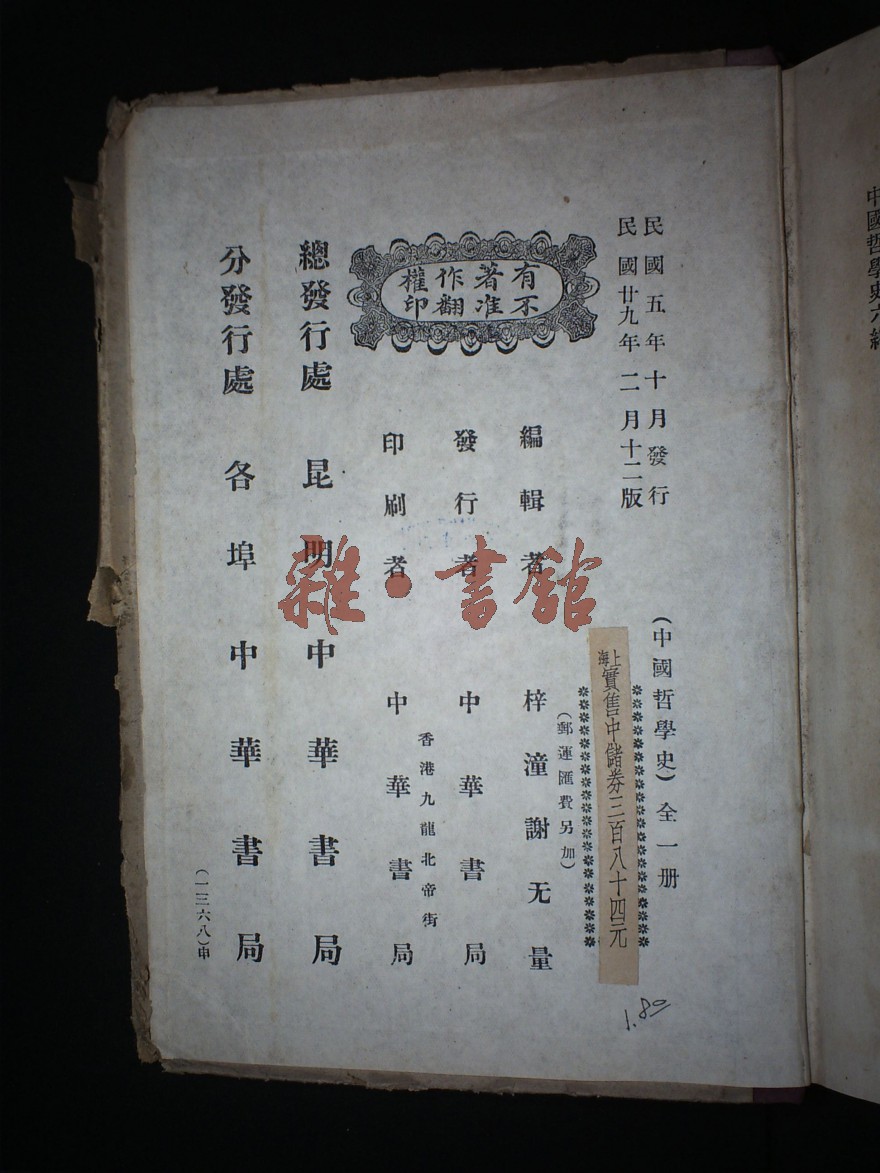 民國五年十月發行
民國廿九年二月十二版
(中國哲學史)全一册
上海實售中儲券三百八十四元
(郵運匯費另加)
1.80
有著作權
不准翻印
編輯者 梓潼謝无量
發行者 中華書局
香港九龍北帝街
印刷者 中華書局
總發行處 昆明中華書局
分發行處 各埠中華書局
(一三六八)申
雜·書館
中國哲學史六